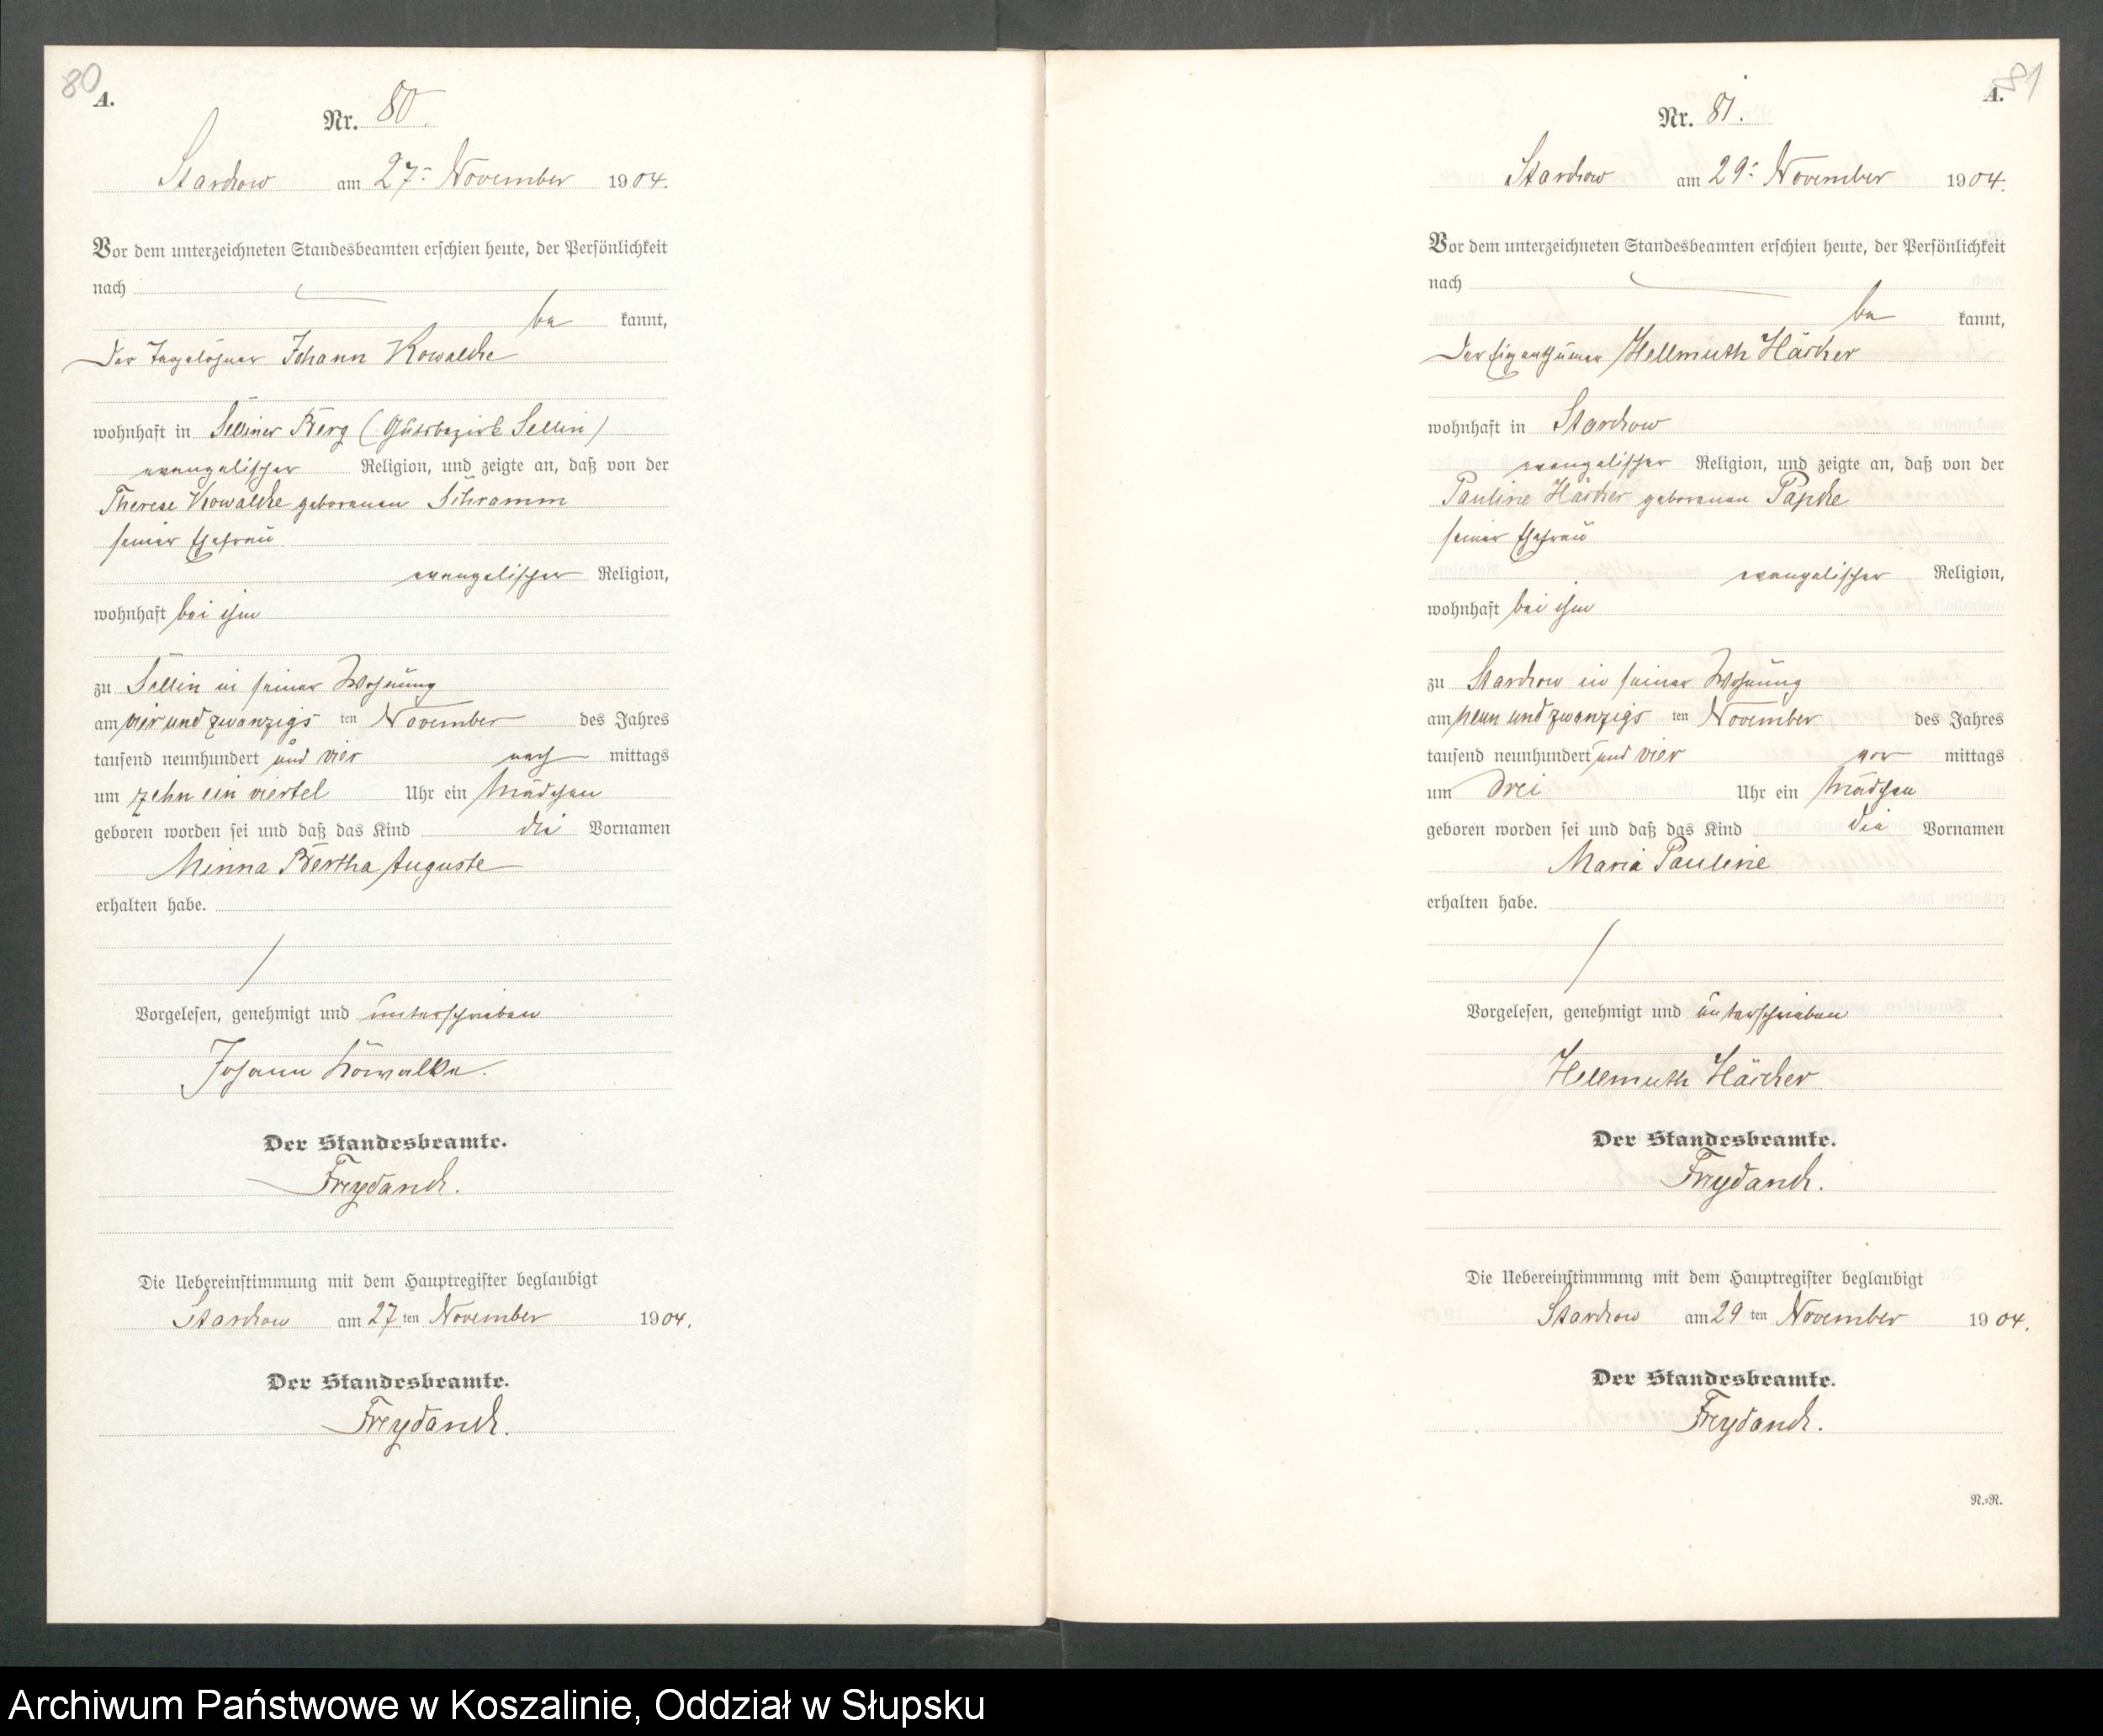 80
A.
Nr. 80.
Starckow am 27. November 1904.
Vor dem unterzeichneten Standesbeamten erschien heute, der Persönlichkeit
nach
be kannt,
Der Tagelöhner Johann Kowalcke
wohnhaft in Selliner Berg (Gutsbezirk Sellin)
evangelischer Religion, und zeigte an, daß von der
Therese Kowalcke geborenen Schramm
seiner Ehefrau
evangelischer Religion,
wohnhaft bei ihm
zu Sellin in seiner Wohnung
am vier und zwanzigs ten November des Jahres
tausend neunhundert und vier nach mittags
um zehn ein viertel Uhr ein Mädchen
geboren worden sei und daß das Kind die Vornamen
Minna Bertha Auguste
erhalten habe.
Vorgelesen, genehmigt und unterschrieben
Johann Kowalke.
Der Standesbeamte.
Freydanck.
Die Uebereinstimmung mit dem Hauptregister beglaubigt
Starckow am 27 ten November 1904.
Der Standesbeamte.
Freydanck.
81
A.
Nr. 81.
Starckow am 29. November 1904.
Vor dem unterzeichneten Standesbeamten erschien heute, der Persönlichkeit
nach
be kannt,
Der Eigenthümer Hellmuth Häcker
wohnhaft in Starckow
evangelischer Religion, und zeigte an, daß von der
Pauline Häcker geborenen Papcke
seiner Ehefrau
evangelischer Religion,
wohnhaft bei ihm
zu Starckow in seiner Wohnung
am neun und zwanzigs ten November des Jahres
tausend neunhundert und vier vor mittags
um drei Uhr ein Mädchen
geboren worden sei und daß das Kind die Vornamen
Maria Pauline
erhalten habe.
Vorgelesen, genehmigt und unterschrieben
Hellmuth Häcker
Der Standesbeamte.
Freydanck.
Die Uebereinstimmung mit dem Hauptregister beglaubigt
Starckow am 29 ten November 1904.
Der Standesbeamte.
Freydanck.
N.=R.
Archiwum Państwowe w Koszalinie, Oddział w Słupsku